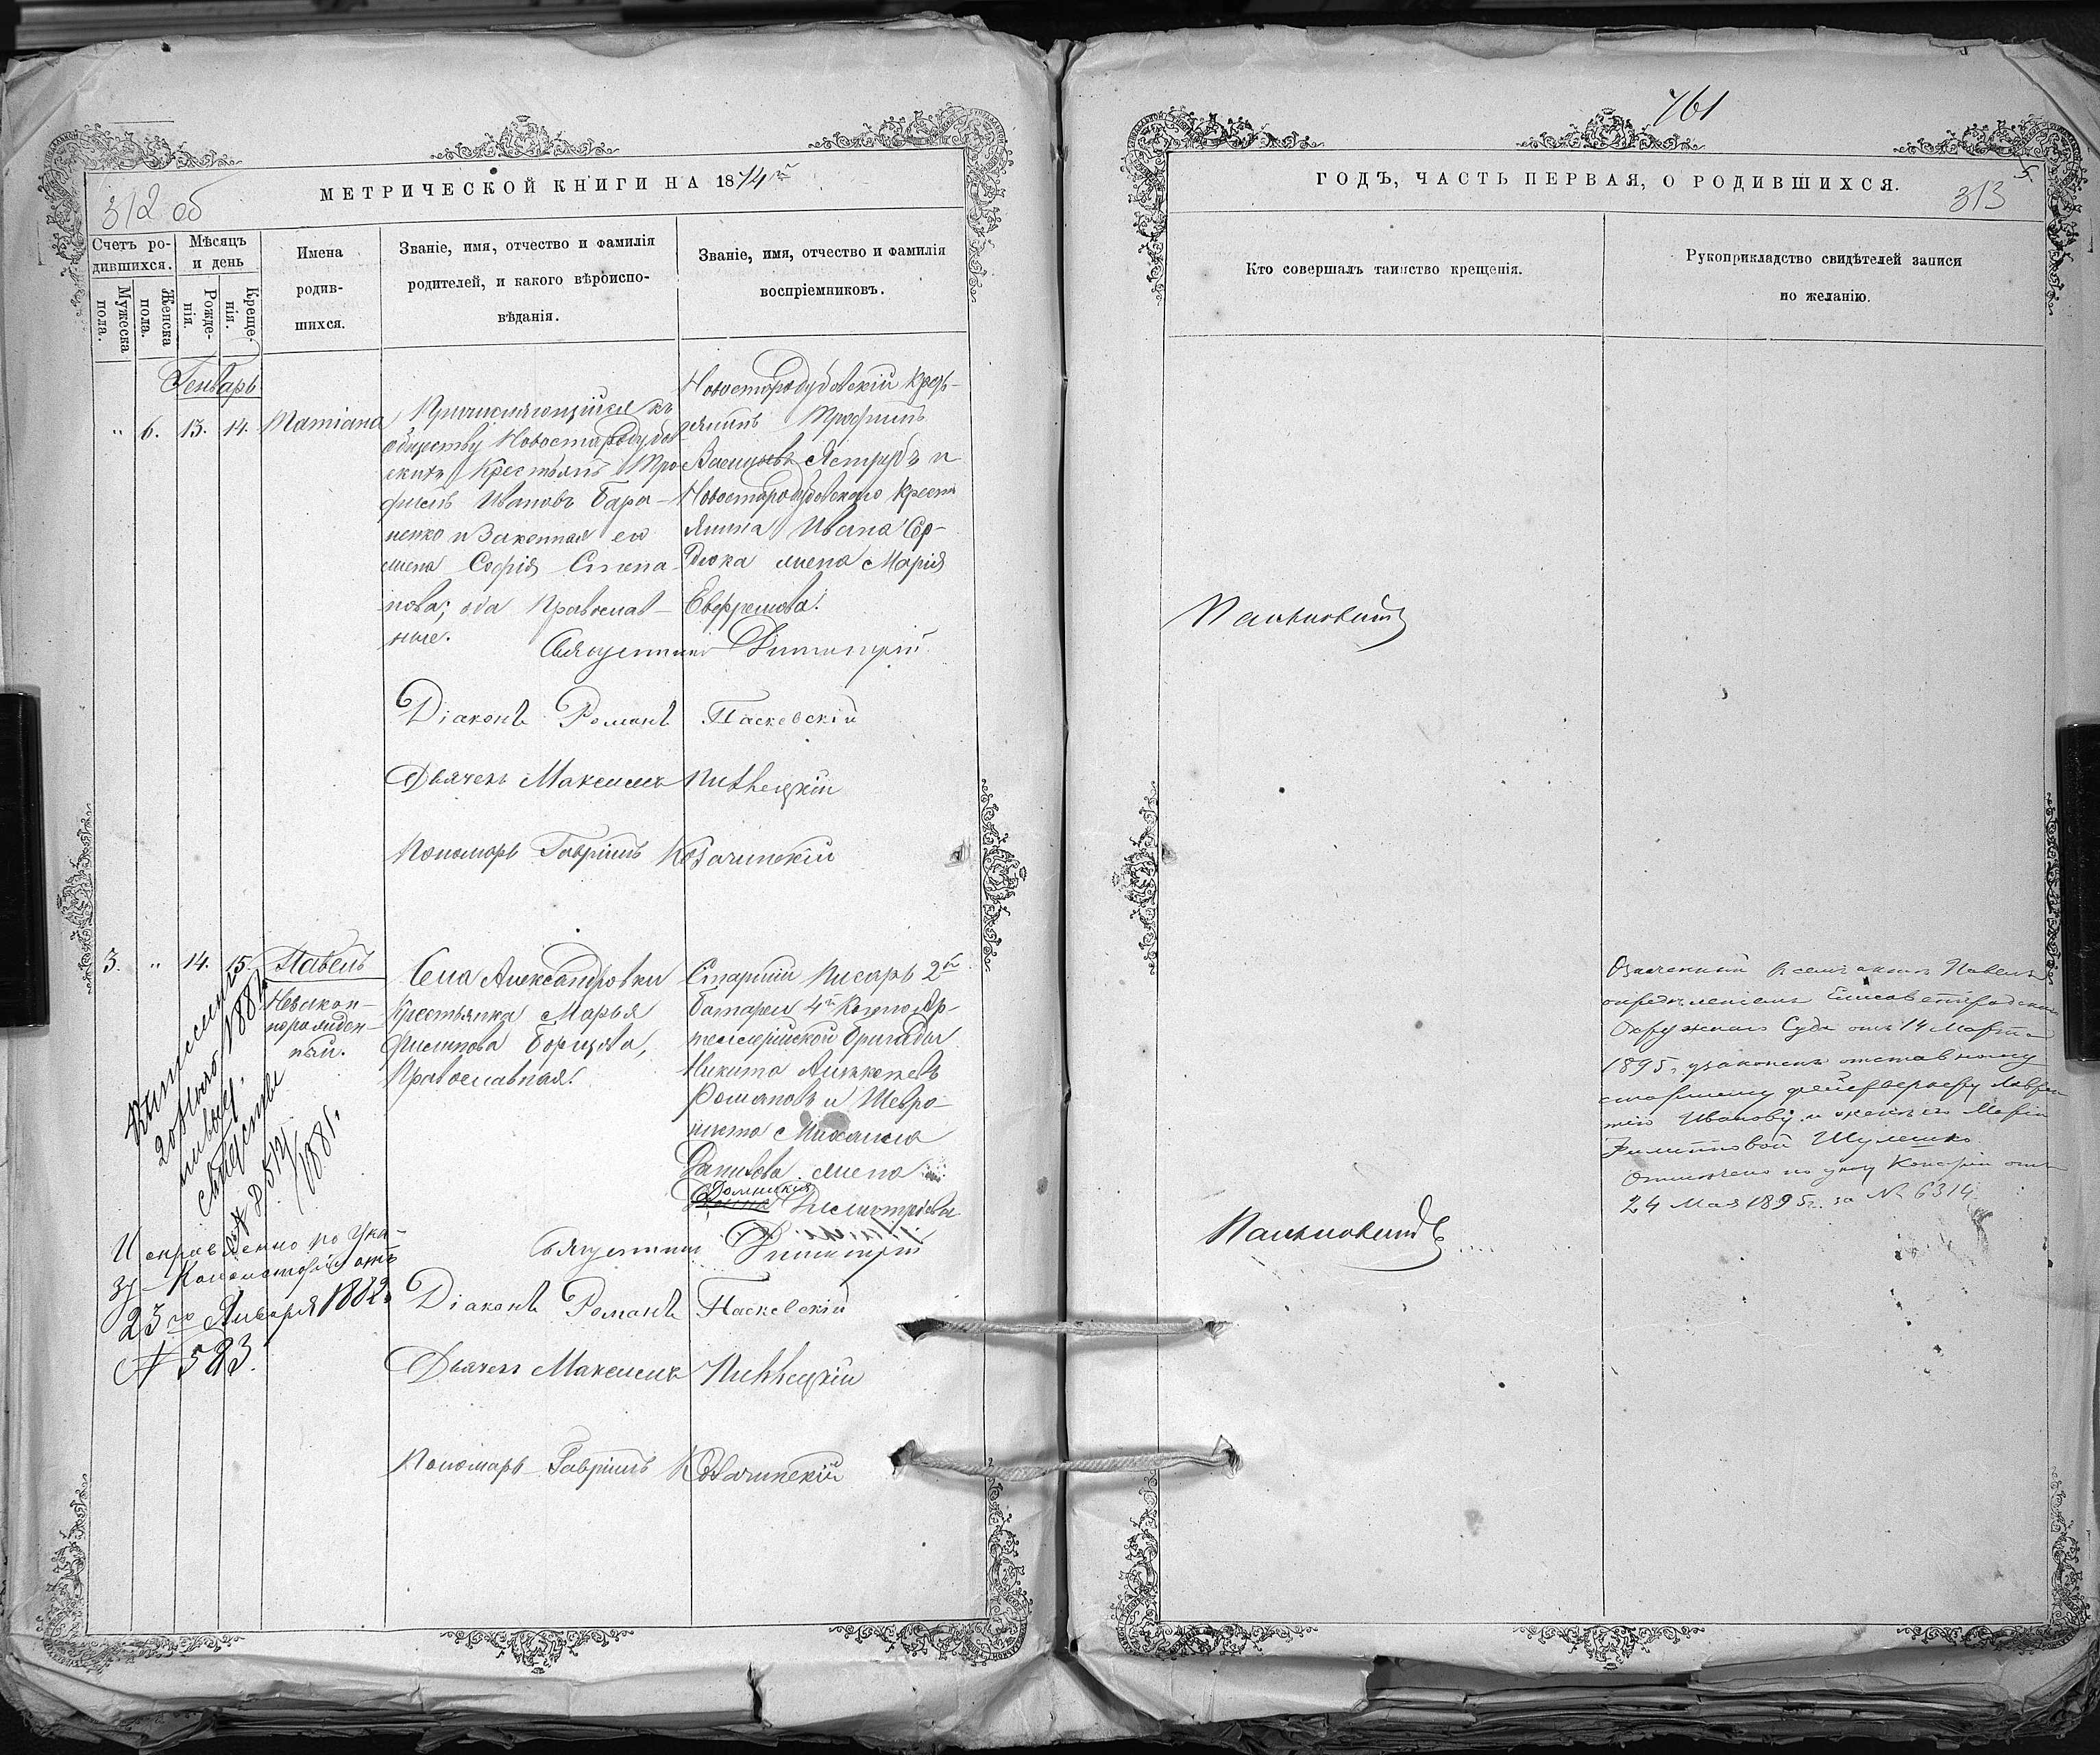 МЕТРИЧЕСКОЙ КНИГИ НА 1874й
312 об
Счетъ ро-
дившихся.
Мужеска
пола.
Женска
пола.
Мѣсяцъ
и день
Рожде-
нія.
Креще-
нія.
Имена
родив-
шихся.
Званіе, имя, отчество и фамилія
родителей, и какого вѣроиспо-
вѣданія.
Званіе, имя, отчество и фамилія
воспріемниковъ.
Генварь
" 6. 13. 14. Татіана
Причисляющійся къ
обществу Новостародубов-
скихъ Крестьянъ Тро-
фимъ Ивановъ Бара-
ненко и Законная его
жена Софія Степа-
нова; оба Православ-
ные.
Новостародубовскій Кресть-
янинъ Трофимъ
Васильевъ Ястребъ и
Новостародубовскаго Крестья
янина Ивана Сер-
дюка жена Марія
Евфремова.
Священникъ Димитрій
Діаконъ Романъ Паскевскій
Дьячекъ Максимъ
Пономарь Гавріилъ Козачинскій
3. " 14. 15. Павелъ
Незакон-
норожден-
ный.
Села Александровки
Крестьянка Марья
Филипова Борцова,
Православная.
Старшій Писарь 2й
Батареи 4й Конно Ар-
тиллерійской бригады
Никита
Романовъ и Шевро-
Михаила
Данилова жена
Домникія
Димитріева
Священникъ Димитрій
Діаконъ Романъ Паскевскій
Дьячекъ Максимъ
Пономарь Гавріилъ Козачинскій
1882
1881г.
Исправленно по Ука-
зу Консисторіи отъ
23го Января 1882г.
№ 583.
761
ГОДЪ, ЧАСТЬ ПЕРВАЯ, О РОДИВШИХСЯ.
313
Кто совершалъ таинство крещенія.
Рукоприкладство свидѣтелей записи
по желанію.
Означенный в семъ актѣ Павелъ
опредѣленіемъ Елисаветградскаго
Окружнаго Суда отъ 14 Марта
1895 г. узаконенъ отставному
старшему фейерверкеру Лаврен
тію Иванову и женѣ его Маріи
Филипповой Шулешко
Отмѣчено по указу Консист. отъ
24 Мая 1895г. за № 6314